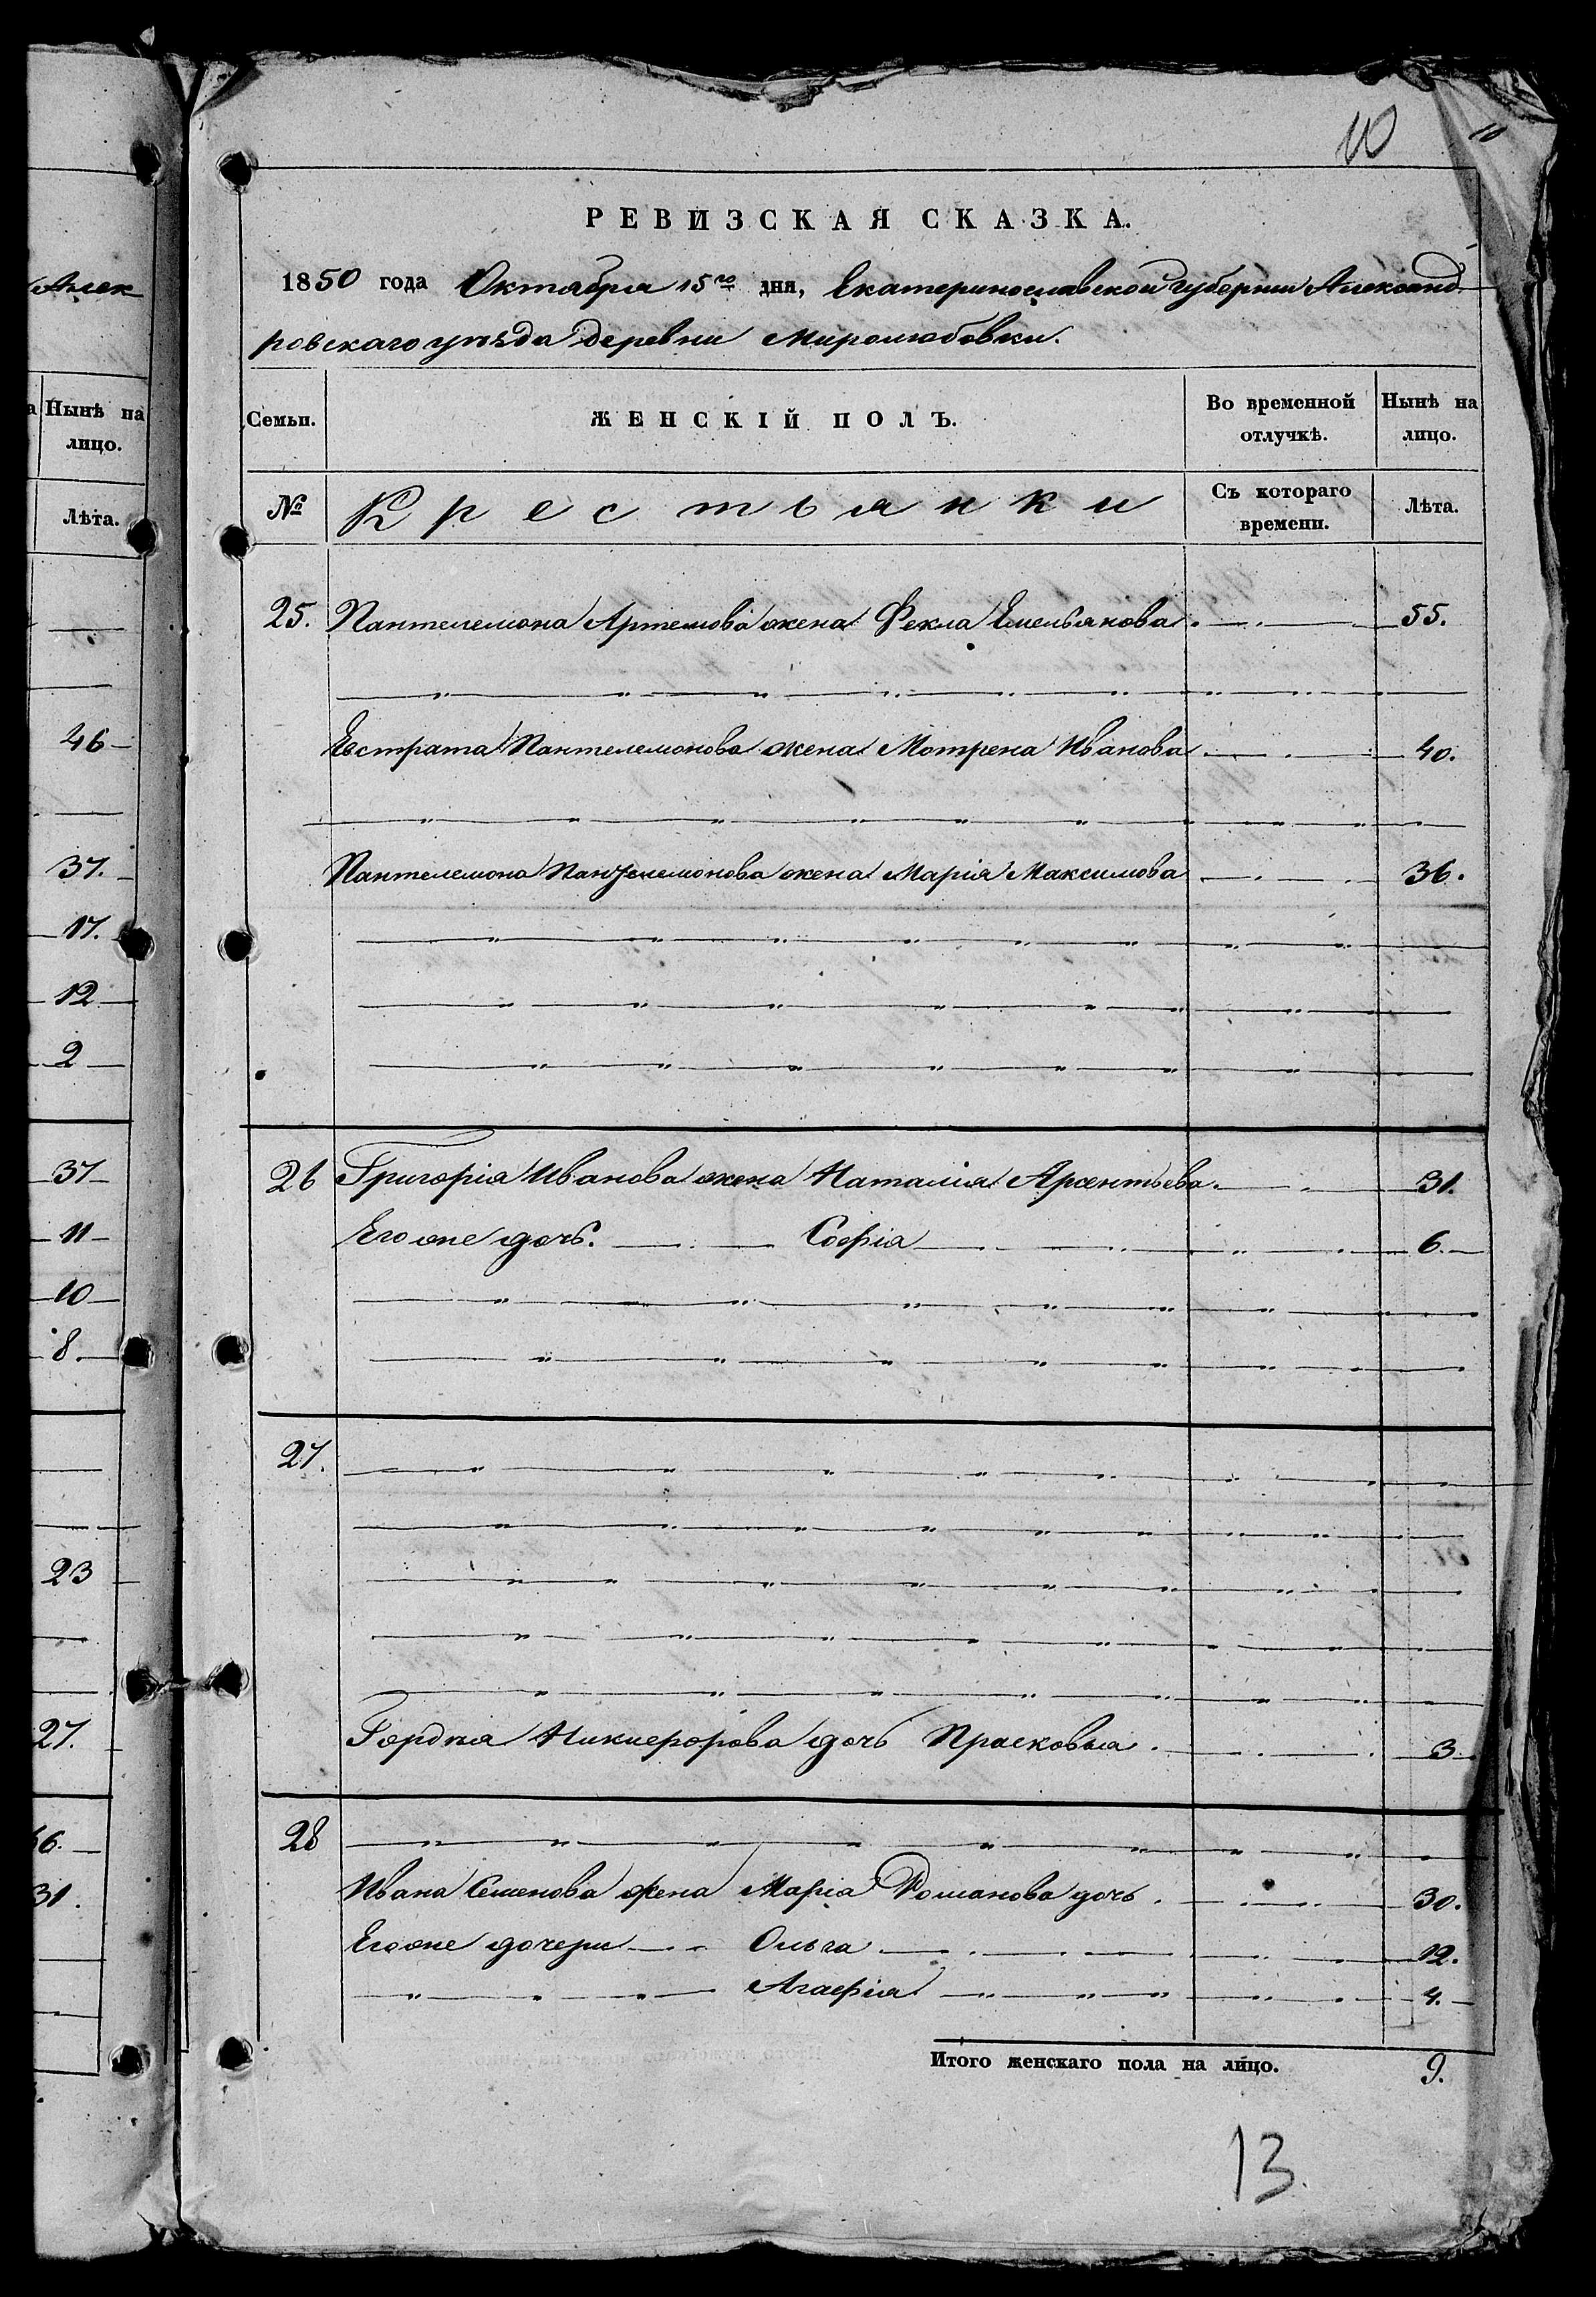 10 10
РЕВИЗСКАЯ СКАЗКА.
Алек
1850 года Октября 15го дня, Екатеринославской губернии Александ
ровскаго уѣзда деревни Миролюбовки.
Нынѣ на лицо.
Лѣта.
Семьи. ЖЕНСКІЙ ПОЛЪ. Во временной отлучкѣ. Нынѣ на лицо.
№ Крестьянки Съ котораго времени. Лѣта.
25. Пантелемона Артемова жена Фекла Емельянова. 55.
46
Евстрата Пантелемонова жена Мотрена Иванова 40.
37.
Пантелемона Пантелемонова жена Марія Максимова 36.
17.
12
2
37
26 Григорія Иванова жена Наталія Арсентьева. 31.
11
Его же дочь. Софія 6.
10
8.
27.
23
27.
Гордѣя Никиефорова дочь Прасковья. 3
28
31.
Ивана Семенова жена Марія Романова дочь. 30.
Его же дочери Ольга 12.
" " " Агафія 4.
Итого женскаго пола на лицо. 9.
13.